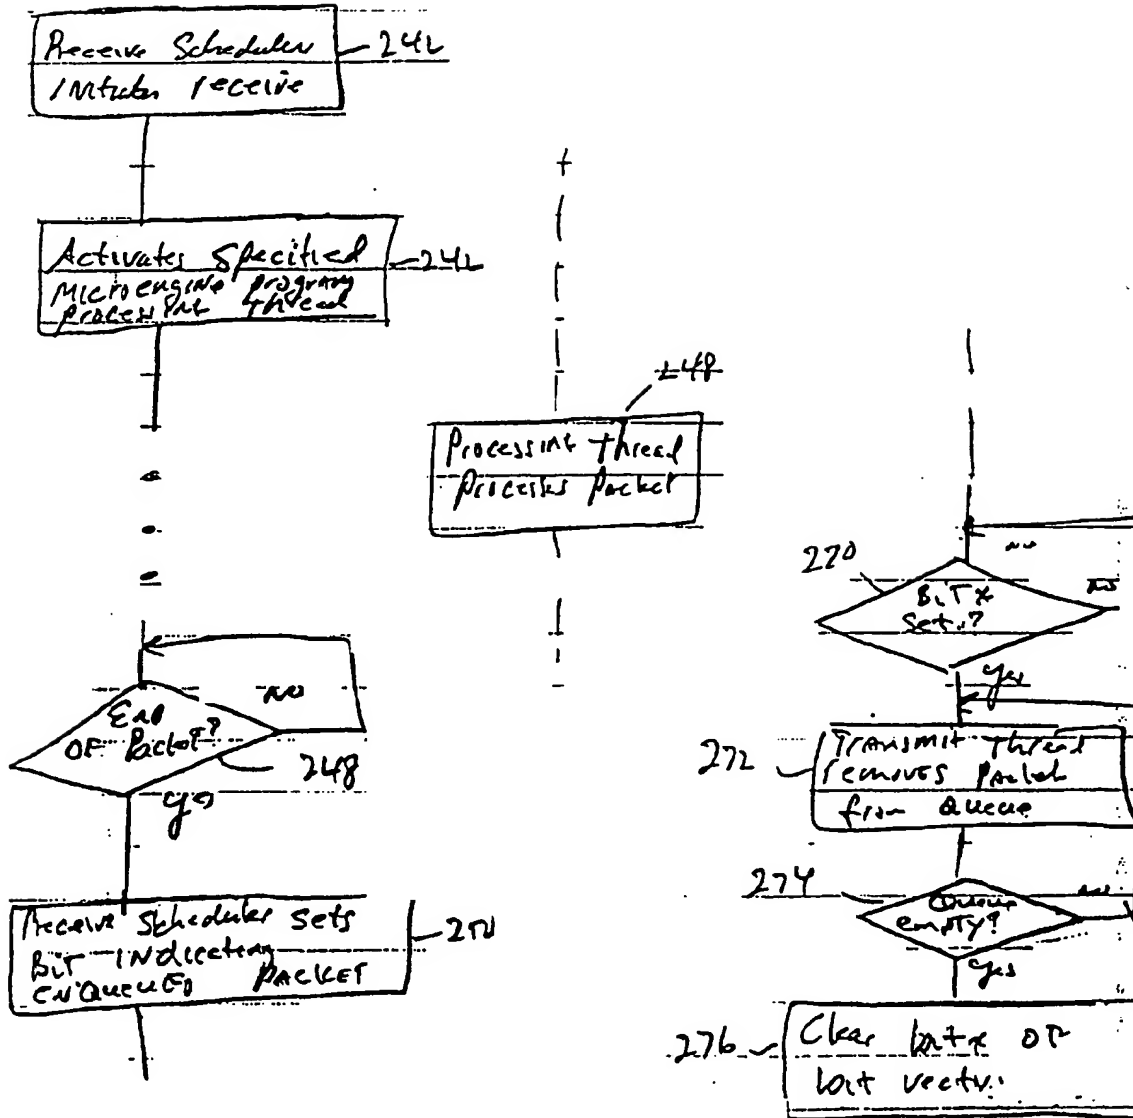 Receive Scheduler
Initiates receive
242
Activates Specified
Microengine program
Processing thread
242
248
Processing thread
Processes Packet
End
OF Packet?
No
248
yes
Receive Scheduler sets
Bit indicating
enqueued Packet
250
270
Bit x
Set?
No
No
yes
272
Transmit thread
removes Packet
from Queue
274
Queue
empty?
No
Yes
276
Clear bit x of
bit vector